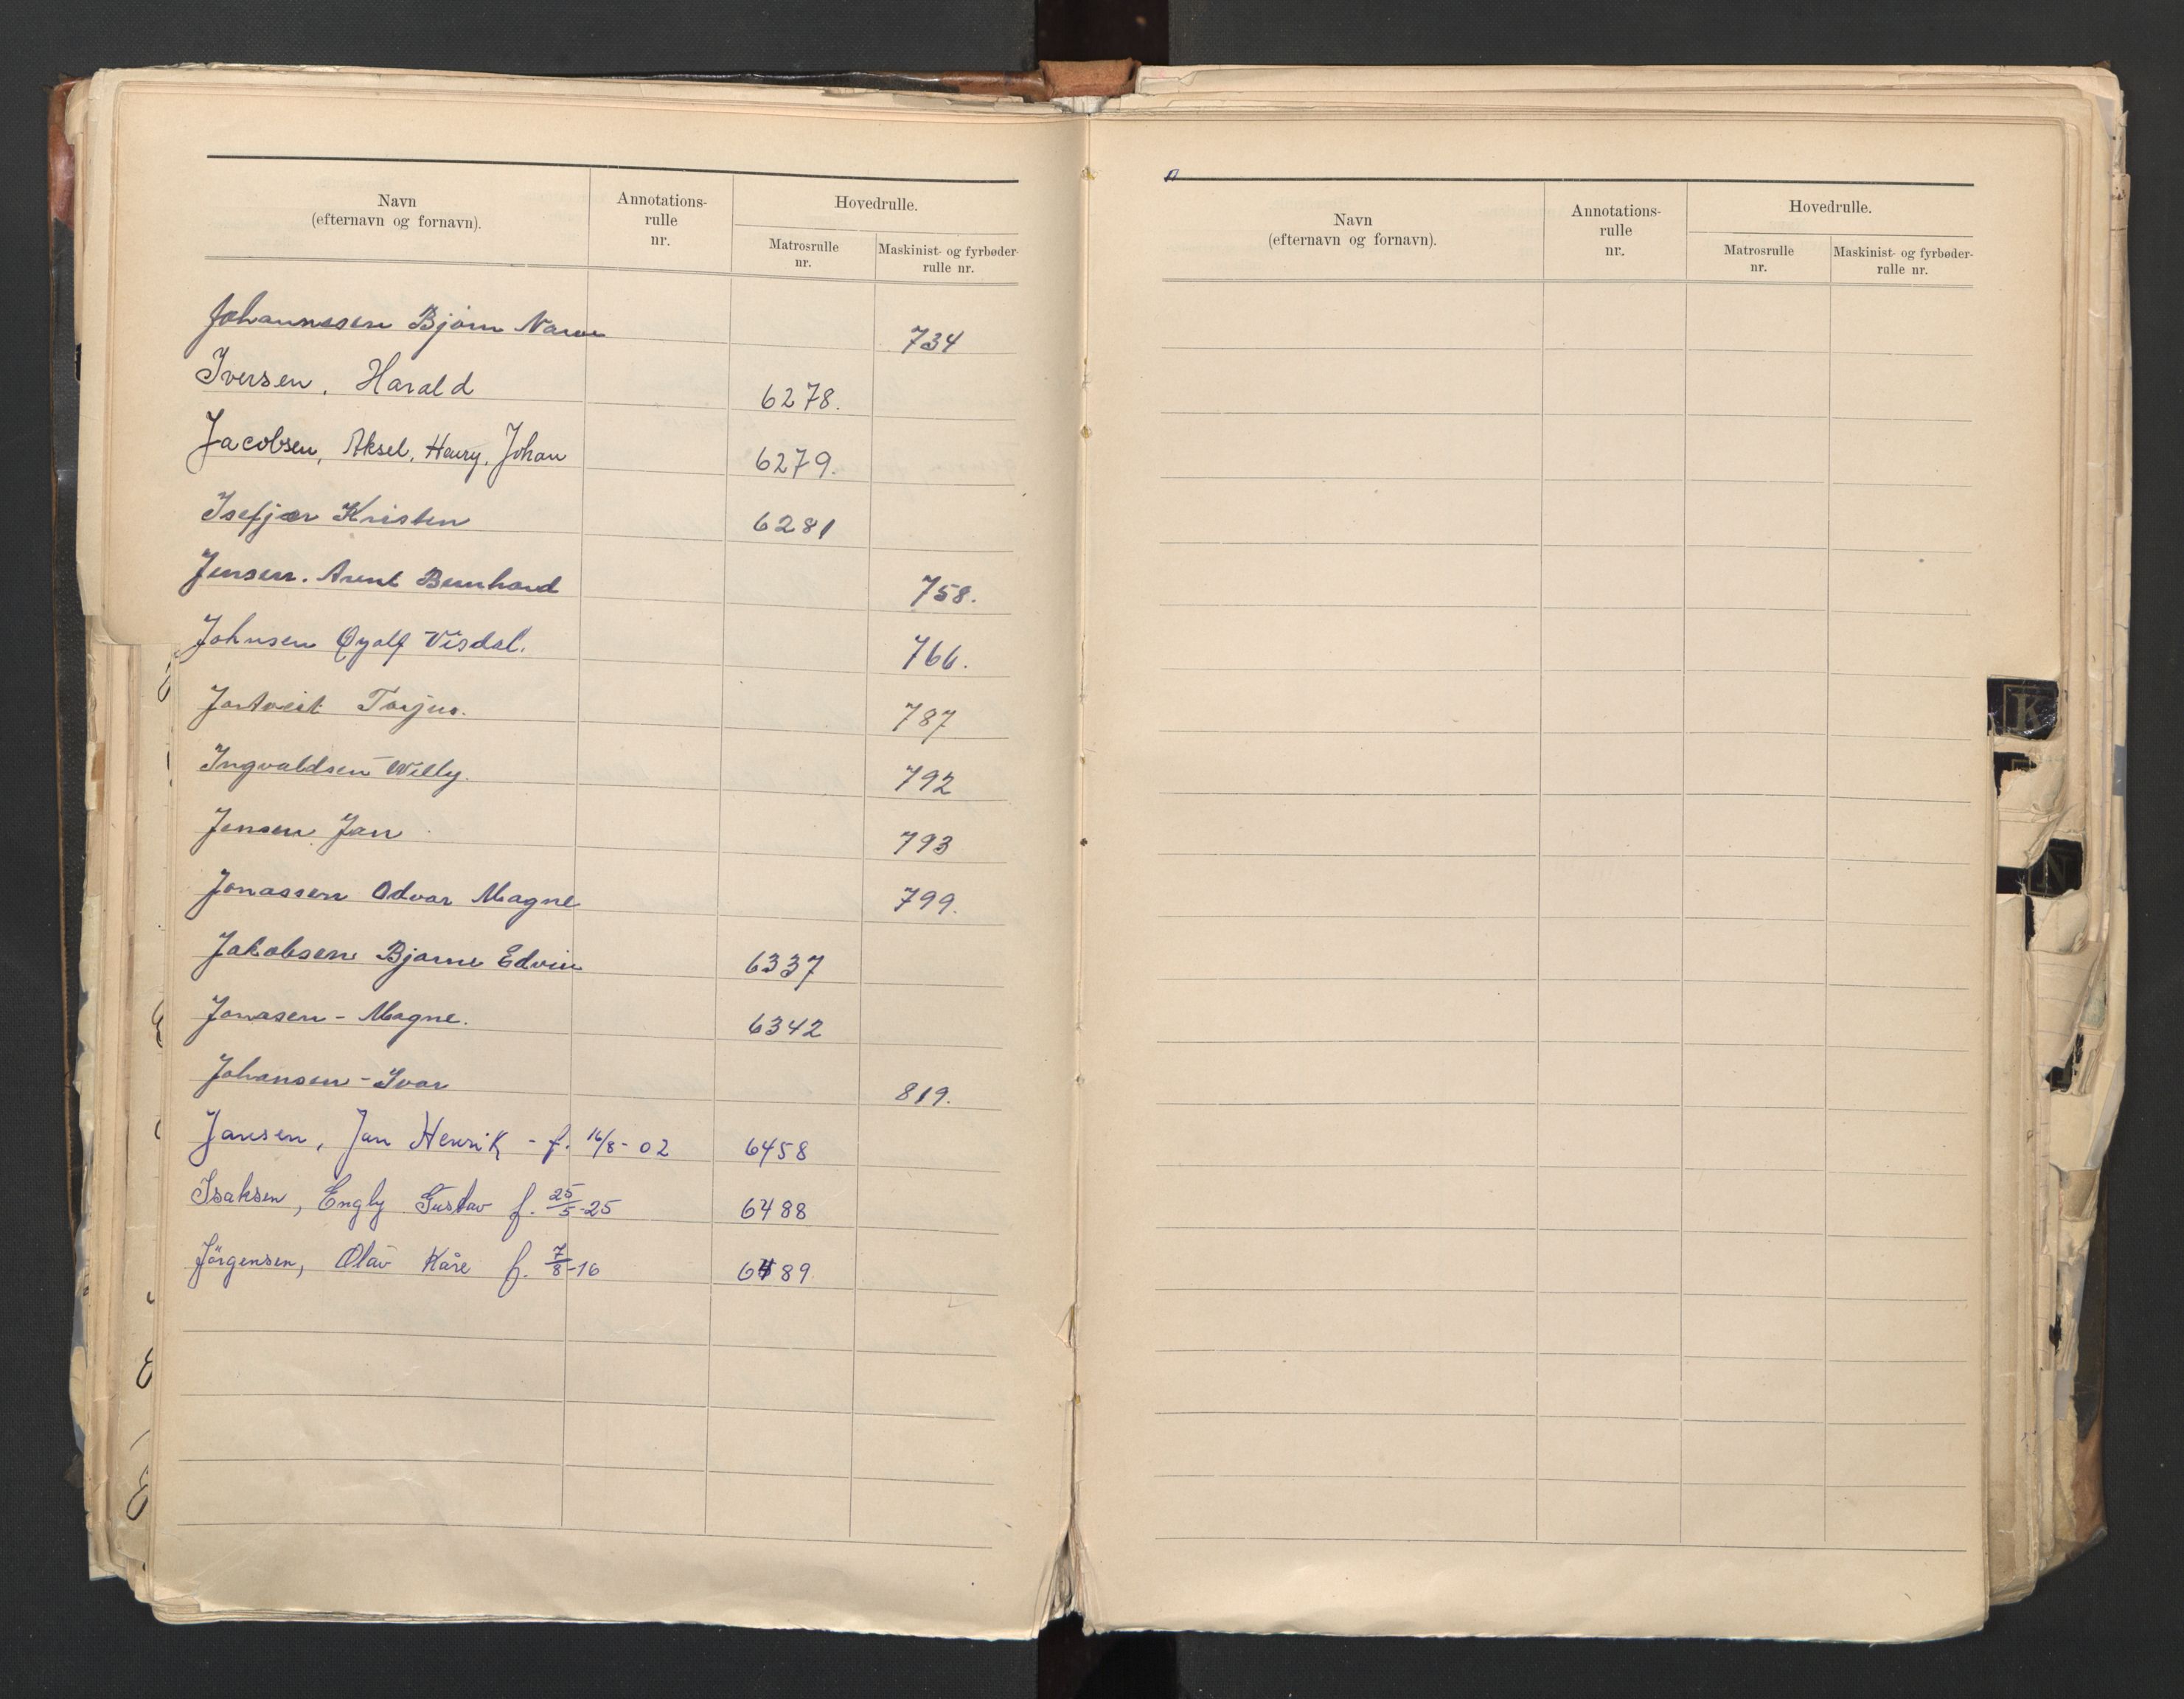 Navn
(efternavn og fornavn).
Annotations-
rulle
nr.
Hovedrulle.
Matrosrulle
nr.
Maskinist- og fyrbøder-
rulle nr.
Johannssen Bjørn 734
Iversen, Harald 6278.
Jacobsen, Aksel, Harry, Johan 6279.
Isefjær Kristen 6281
Jensen. Arent Bernhard 758.
Johnsen Øyolf Visdal. 766.
Jortveit Torjus. 787
Ingvaldsen Willy. 792
Jensen Jan 793
Jonassen Odvar Magne 799.
Jakobsen Bjarne Edvin 6337
Jonasen - Magne. 6342
Johansen - Ivar 819.
Jansen, Jan Henrik - f. 16/8 - 02 6458
Isaksen, Engly Gustav f. 25/5-25 6488
Jörgensen, Olav Kåre f. 7/8-16 6489
Navn
(efternavn og fornavn).
Annotations-
rulle
nr.
Hovedrulle.
Matrosrulle
nr.
Maskinist- og fyrbøder-
rulle nr.
K
N